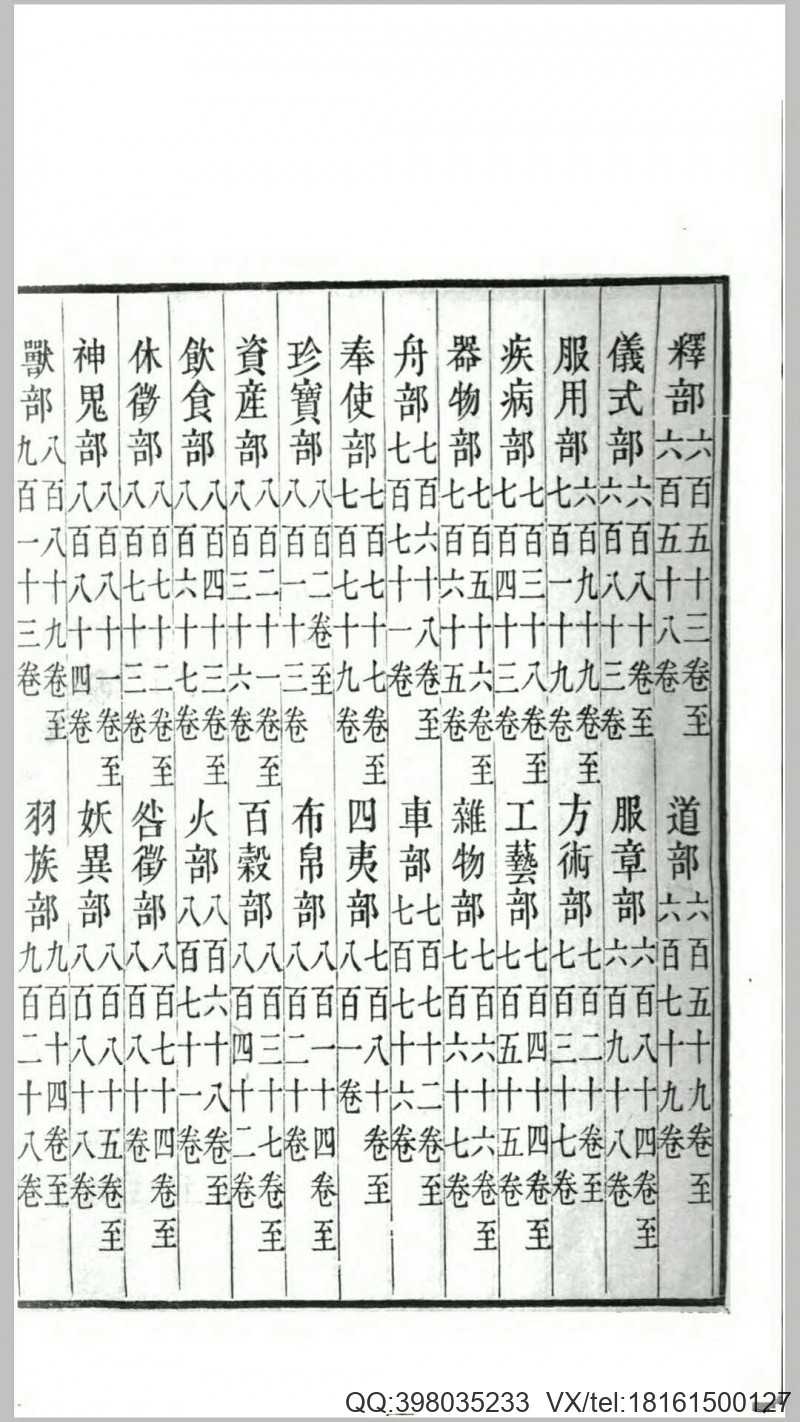 釋部六百五十三卷至六百五十八卷 道部六百五十九卷至六百七十九卷
儀式部六百八十卷至六百八十三卷 服章部六百八十四卷至六百九十八卷
服用部六百九十九卷至七百一十九卷 方術部七百二十卷至七百三十七卷
疾病部七百三十八卷至七百四十三卷 工藝部七百四十四卷至七百五十五卷
器物部七百五十六卷至七百六十五卷 雜物部七百六十六卷至七百六十七卷
舟部七百六十八卷至七百七十一卷 車部七百七十二卷至七百七十六卷
奉使部七百七十七卷至七百七十九卷 四夷部七百八十卷至八百一卷
珍寶部八百二卷至八百一十三卷 布帛部八百一十四卷至八百二十卷
資産部八百二十一卷至八百三十六卷 百穀部八百三十七卷至八百四十二卷
飲食部八百四十三卷至八百六十七卷 火部八百六十八卷至八百七十一卷
休徵部八百七十二卷至八百七十三卷 咎徵部八百七十四卷至八百八十卷
神鬼部八百八十一卷至八百八十四卷 妖異部八百八十五卷至八百八十八卷
獸部八百八十九卷至九百一十三卷 羽族部九百十四卷至九百二十八卷
QQ:398035233 VX/tel:18161500127